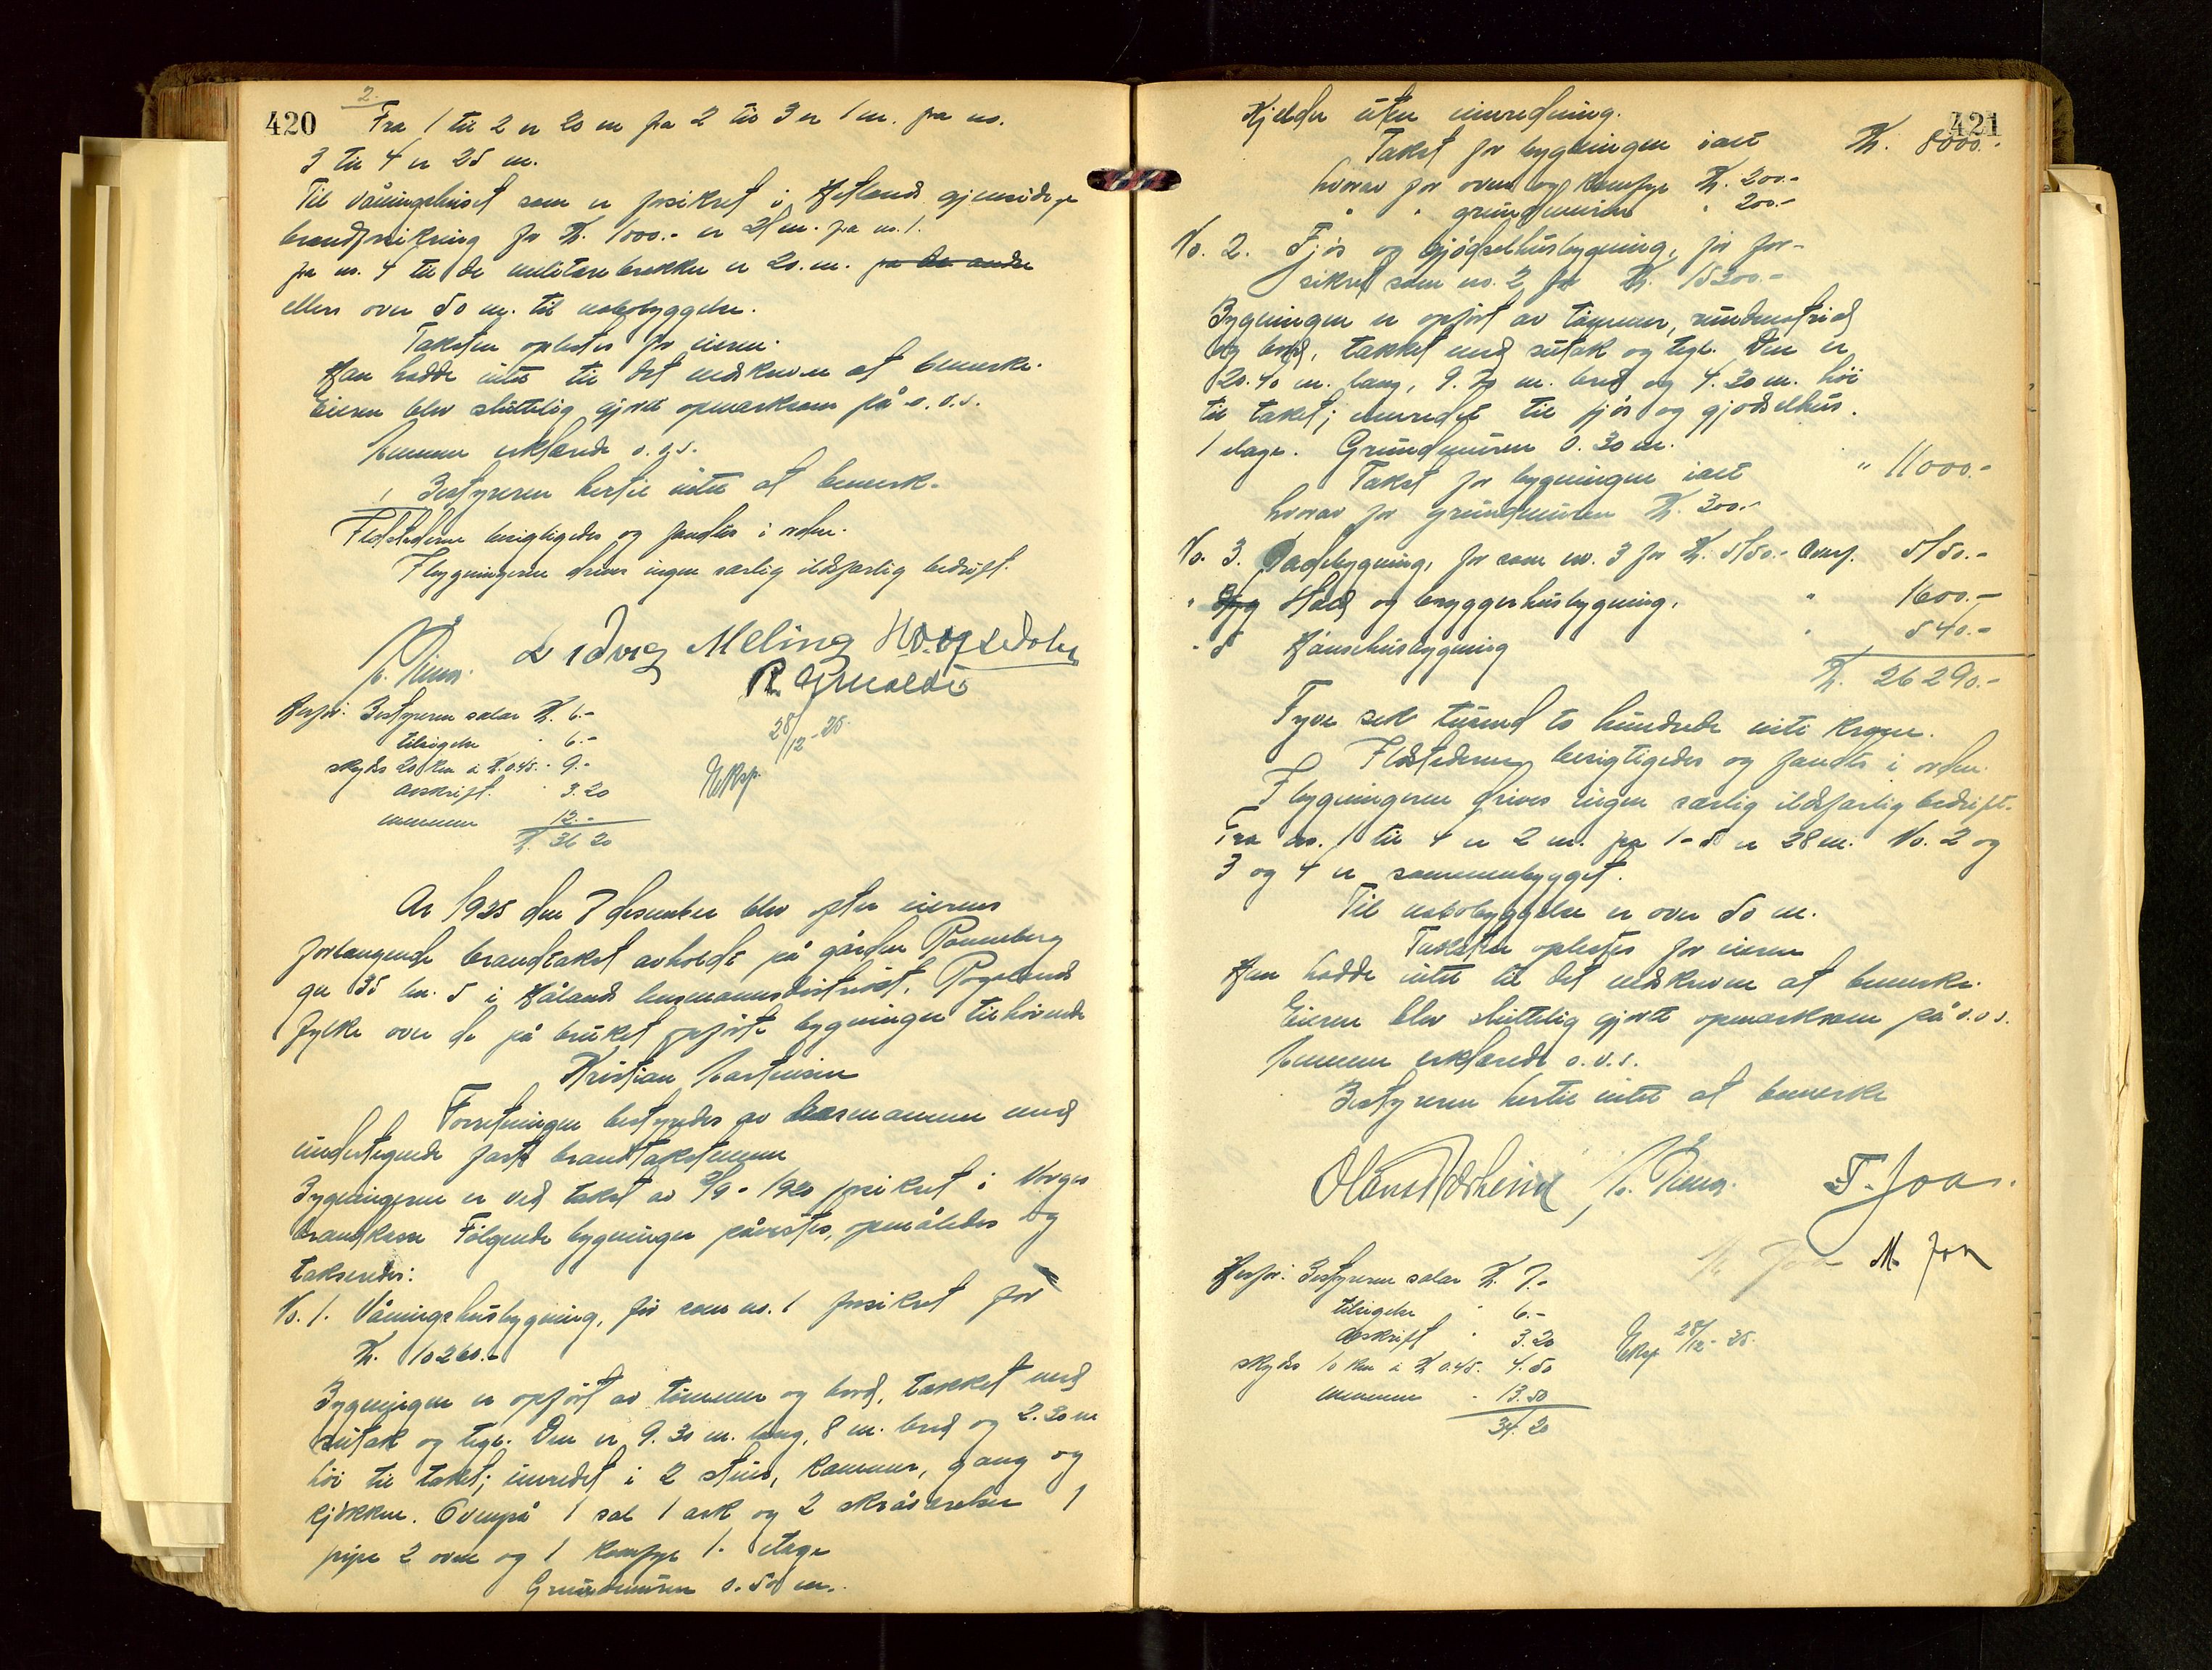 420
2.
Fra 1 til 2 er 20 m fra 2 til 3 er 1 m. fra no.
3 til 4 er 25 m.
Til våningshuset som er forsikret i Hetlands gjensidige
brandforsikring for Kr. 1000.- er 21 m. fra no. 1.
fra no. 4 til de militære brakker er 20. m. fra de andre
ellers over 50 m. til nabobyggelse.
Taksten oplestes for eieren.
Han hadde intet til det nedskrevne at bemerke.
Eieren blev sluttelig gjort opmerksom på o.s.v.
Mennene erklærede o.s.v.
Bestyreren hertil intet at bemerk-
Ildstederne besigtigedes og fandtes i orden.
I bygningerne drives ingen særlig ildsfarlig bedrift.
Ludvig Meling
Herfor: Bestyrerens salær Kr. 6.-
tilsigelse " 6.-
skyds 20 km a Kr. 0.45 " 9.-
avskrift " 3.20
mennene 12.-
Kr. 36 20
28/12-25.
Eksp.
År 1925 den 7 desember blev efter eierens
forlangende brandtakst avholdt på gården Ronneberg
gn 35 bn. 5 i Hålands lensmannsdistrikt, Rogalands
fylke over de på bruket opførte bygninger tilhørende
Kristian Mortensen
Forretningen bestyredes av lensmannen med
undertegnede faste brandtakstmenn
Bygningerne er ved takst av 2/9-1920 forsikret i Norges
brandkasse Følgende bygninger påvistes, opmåltes og
takseredes:
No. 1. Våningshusbygning, før som no. 1 forsikret for
Kr. 10260.-
Bygningen er opført av tømmer og bord, tækket med
sutak og tegl. Den er 9.30 m. lang, 8 m. bred og 2.30 m
høi til taket; innredet i 2 stuer, kammer, gang og
kjøkken. Ovenpå 1 sal 1 ark og 2 skråværelser 1
pipe 2 ovne og 1 komfyr 1. etage
Grundmuren 0.50 m.
421
Kjelder uten innredning.
Takst for bygningen ialt Kr. 8000.-
hvorav for ovner og komfyr Kr. 200.-
" " grundmuren " 200.-
No. 2. Fjøs og gjødselhusbygning, før for-
sikret som no. 2 for Kr. 15300.-
Bygningen er opført av tømmer, mursten
og bord, tækket med sutak og tegl. Den er
20.40 m. lang, 9.70 m. bred og 4.30 m. høi
til taket; innredet til fjøs og gjødselhus.
1 etage. Grundmuren 0.30 m.
Takst for bygningen ialt " 11000.-
hvorav for grundmuren Kr. 300.-
No. 3. Ladebygning, før som no. 3 for Kr. 5150.- 5150.-
" Hald og bryggerhusbygning, " 1600.-
" 5 Hønsehusbygning " 540.-
Kr. 26290.-
Tyve seks tusend to hundrede nitti kroner.
Ildstederne besigtigedes og fandtes i orden.
I bygningerne drives ingen særlig ildsfarlig bedrift.
Fra no. 1 til 4 er 2 m. fra 1-5 er 28 m. No. 2 og
3 og 4 er sammenbygget.
Til nabobyggelse er over 50 m.
Taksten oplestes for eieren
Han hadde intet til det nedskrevne at bemerke.
Eieren blev sluttelig gjort opmerksom på o.s.v.
Mennene erklærede o.s.v.
Bestyreren hertil intet at bemerke
T. Joa.
M. Joa
Herfor: Bestyrerens salær Kr. 7.-
tilsigelse " 6.-
avskrift " 3.20
skyds 10 km a Kr 0.45. 4.50
mennene " 13.50
34.20
Eksp. 28/12-25.